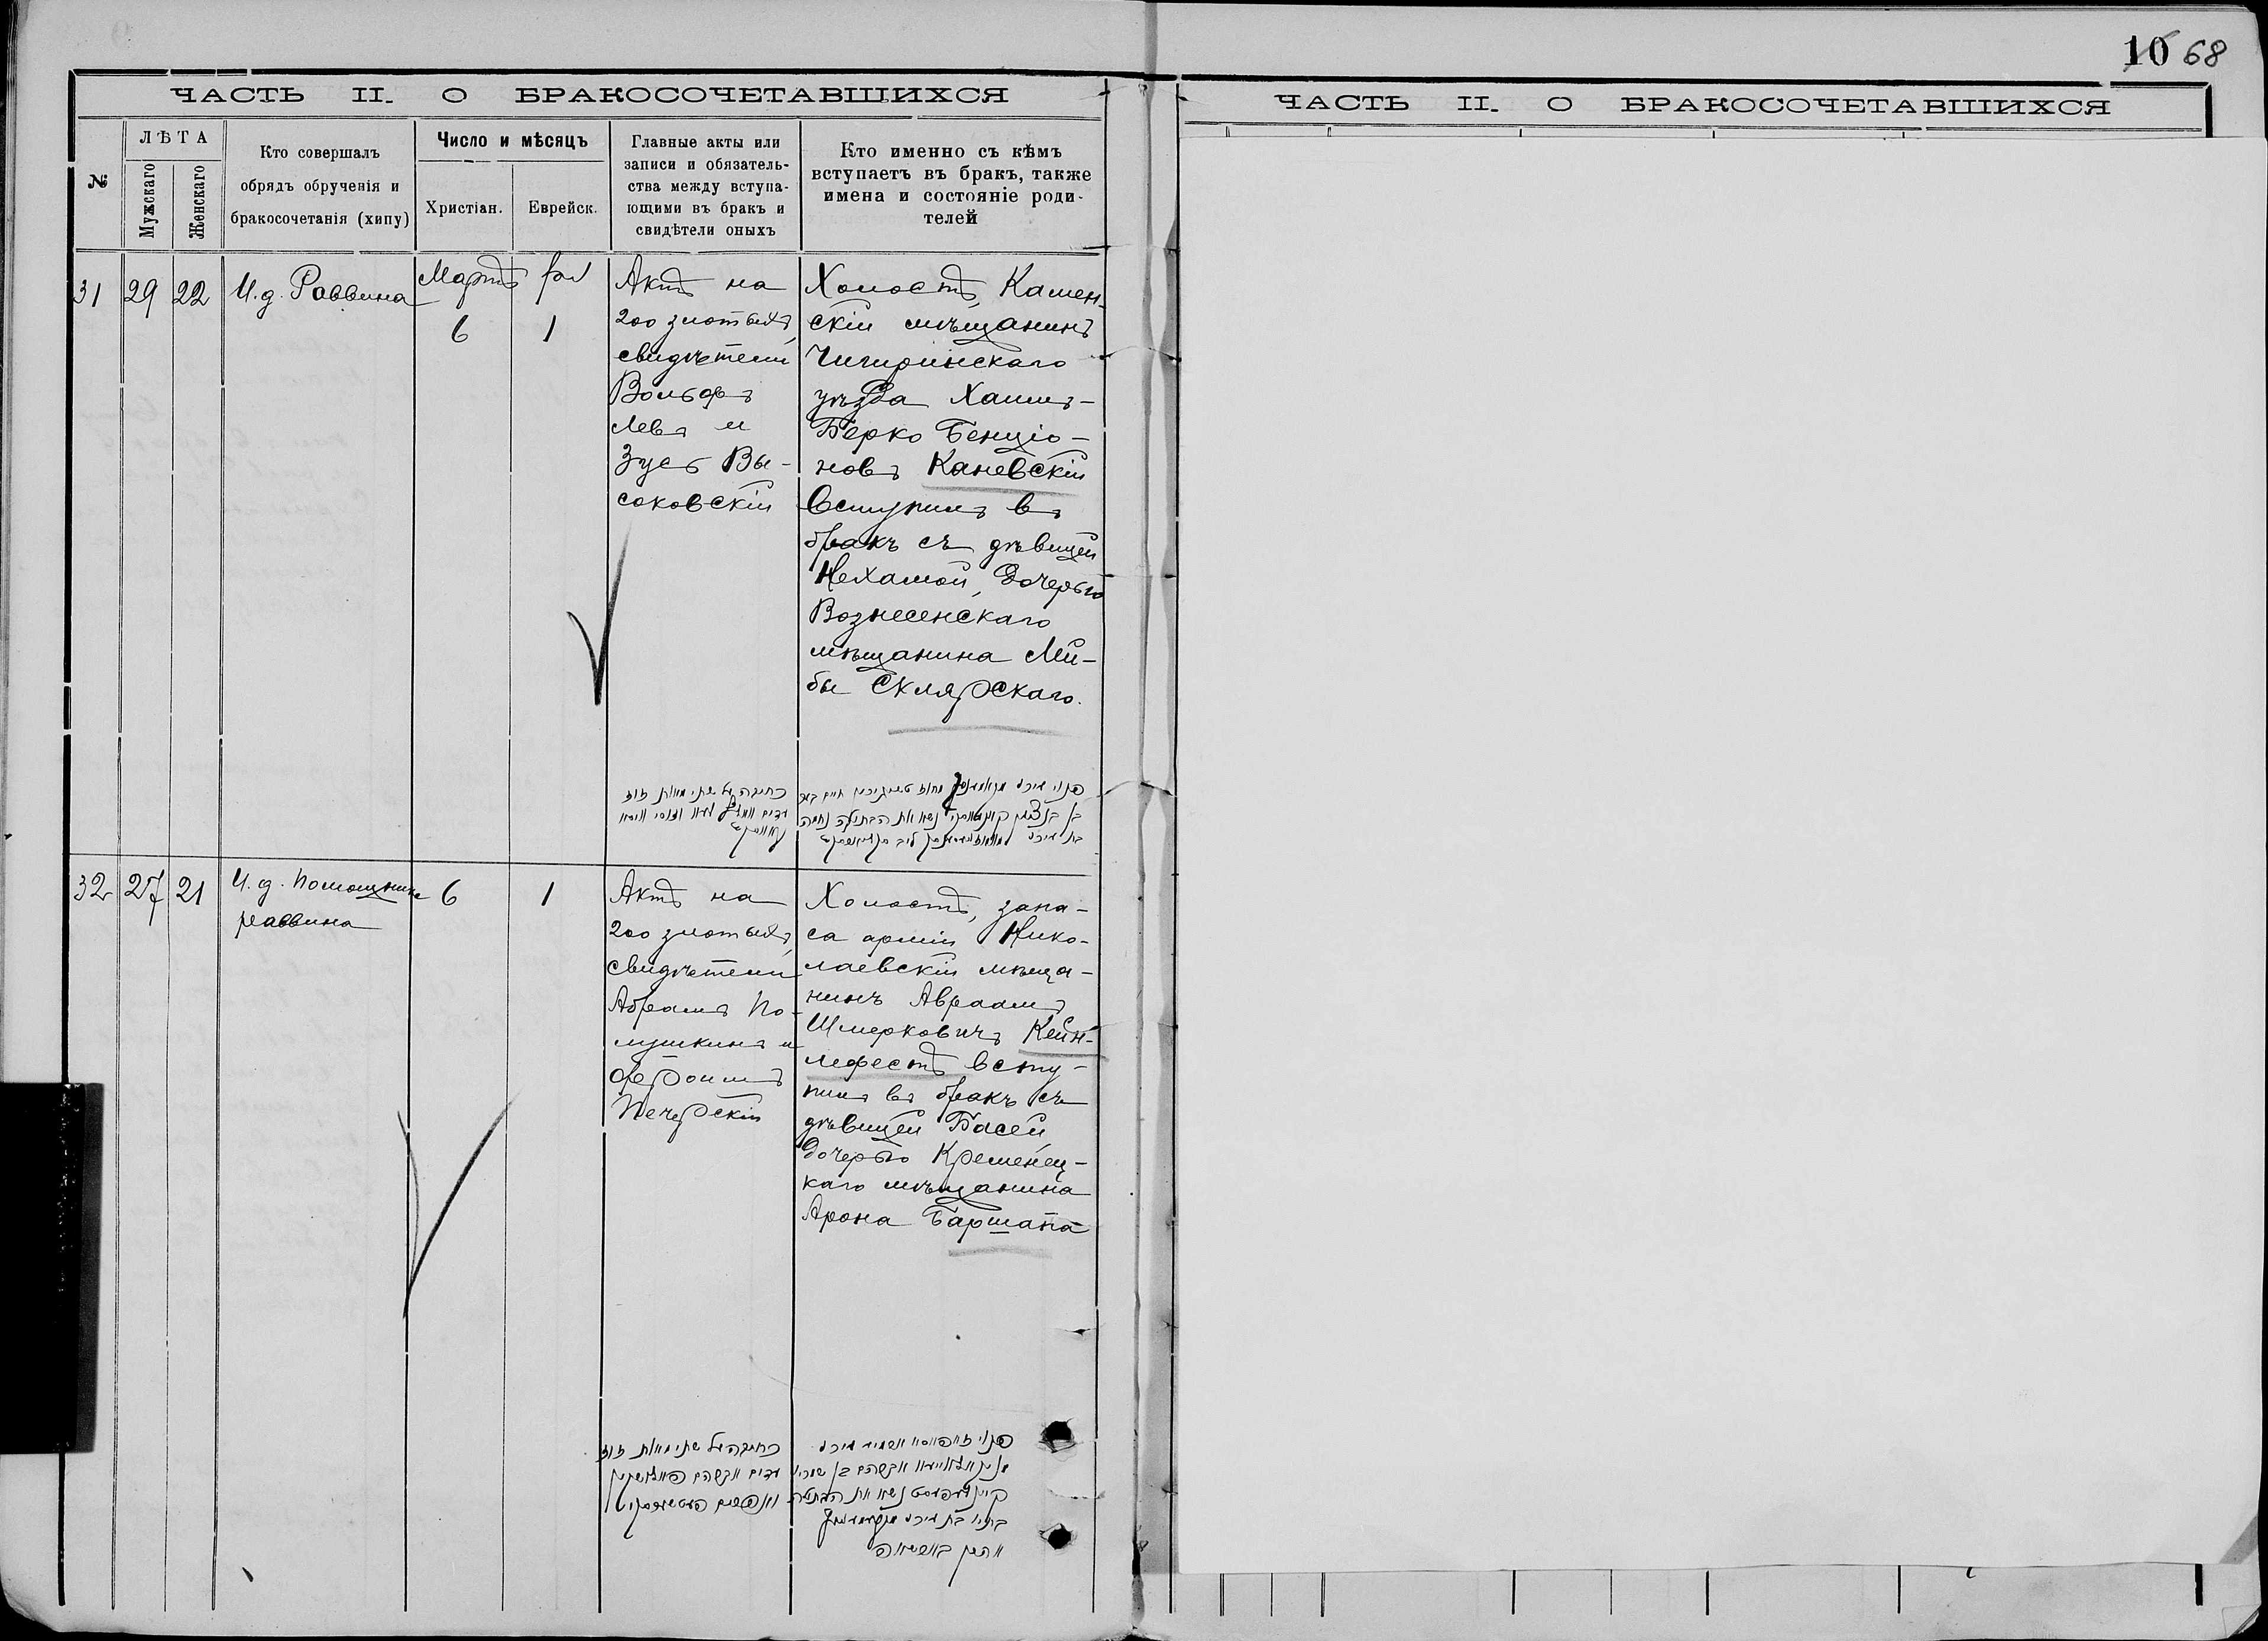 10 68
ЧАСТЬ II. О БРАКОСОЧЕТАВШИХСЯ
ЧАСТЬ II. О БРАКОСОЧЕТАВШИХСЯ
№
ЛѢТА
Мужскаго
Женскаго
Кто совершалъ
обрядъ обрученія и
бракосочетанія (хипу)
Число и мѣсяцъ
Христіан.
Еврейск.
Главные акты или
записи и обязатель-
ства между вступа-
ющими въ бракъ и
свидѣтели оныхъ
Кто именно съ кѣмъ
вступаетъ въ бракъ, также
имена и состояніе роди-
телей
31
29
22
И.д. Раввина
Мартъ
6
1
Актъ на
200 злотыхъ,
свидѣтели
Вольфъ
Левъ и
Зусь Вы-
соковскій
Холостъ, Камен-
скій мѣщанинъ
Чигиринскаго
уѣзда Хаимъ-
Берко Бенціо-
новъ Каневскій
вступилъ въ
бракъ съ дѣвицей
Нехамой, дочерью
Вознесенскаго
мѣщанина Лей-
бы Склярскаго.
כתובה על שתי מאות זוז
32
27
21
И.д. помощника
раввина
6
1
Актъ на
200 злотыхъ,
свидѣтели
Абрамъ По-
лушкинъ и
Фроимъ
Печерскій
Холостъ, запа-
са арміи Нико-
лаевскій мѣща-
нинъ Авраамъ
Шмерковичъ Кейн-
лефестъ всту-
пилъ въ бракъ съ
дѣвицей Басей,
дочерью Кременец-
каго мѣщанина
Арона Баршапа
כתובה על שתי מאות זוז